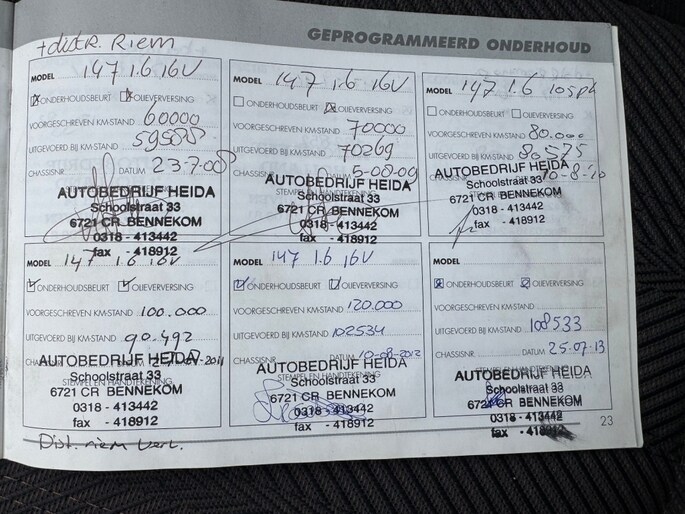 GEPROGRAMMEERD ONDERHOUD
+distr. Riem
MODEL 147 1.6 16V
ONDERHOUDSBEURT OLIEVERVERSING
VOORGESCHREVEN KM-STAND 60000
UITGEVOERD BIJ KM-STAND
CHASSISNR DATUM 23-7-08
AUTOBEDRIJF HEIDA
STEMPEL EN HANDTEKENING
Schoolstraat 33
6721 CR BENNEKOM
0318 - 413442
fax - 418912
MODEL 147 1.6 16V
ONDERHOUDSBEURT OLIEVERVERSING
VOORGESCHREVEN KM-STAND 70000
UITGEVOERD BIJ KM-STAND 70269
CHASSISNR DATUM 5-08-09
AUTOBEDRIJF HEIDA
STEMPEL EN HANDTEKENING
Schoolstraat 33
6721 CR BENNEKOM
0318 - 413442
fax - 418912
MODEL 147 1.6 105pk
ONDERHOUDSBEURT OLIEVERVERSING
VOORGESCHREVEN KM-STAND 80.000
UITGEVOERD BIJ KM-STAND 80575
CHASSISNR 10-8-'10
AUTOBEDRIJF HEIDA
Schoolstraat 33
6721 CR BENNEKOM
0318 - 413442
fax - 418912
MODEL 147 1.6 16V
ONDERHOUDSBEURT OLIEVERVERSING
VOORGESCHREVEN KM-STAND 100.000
UITGEVOERD BIJ KM-STAND 90.492
AUTOBEDRIJF HEIDA
STEMPEL EN HANDTEKENING
Schoolstraat 33
6721 CR BENNEKOM
0318 - 413442
fax - 418912
MODEL 147 1.6 16V
ONDERHOUDSBEURT OLIEVERVERSING
VOORGESCHREVEN KM-STAND 120.000
UITGEVOERD BIJ KM-STAND 102534
CHASSISNR DATUM 10-08-2012
AUTOBEDRIJF HEIDA
STEMPEL EN HANDTEKENING
Schoolstraat 33
6721 CR BENNEKOM
0318 - 413442
fax - 418912
MODEL
ONDERHOUDSBEURT OLIEVERVERSING
VOORGESCHREVEN KM-STAND
UITGEVOERD BIJ KM-STAND 108533
CHASSISNR DATUM 25-07-13
AUTOBEDRIJF HEIDA
STEMPEL EN HANDTEKENING
Schoolstraat 33
6721 CR BENNEKOM
0318 - 413442
fax - 418912
Dist. riem verv.
23